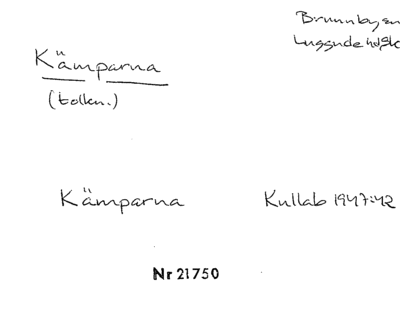 Brunnby sn
Luggude hd Sk
Kämparna
(tolkn.)
Kämparna Kullab 1947:42
Nr 21750